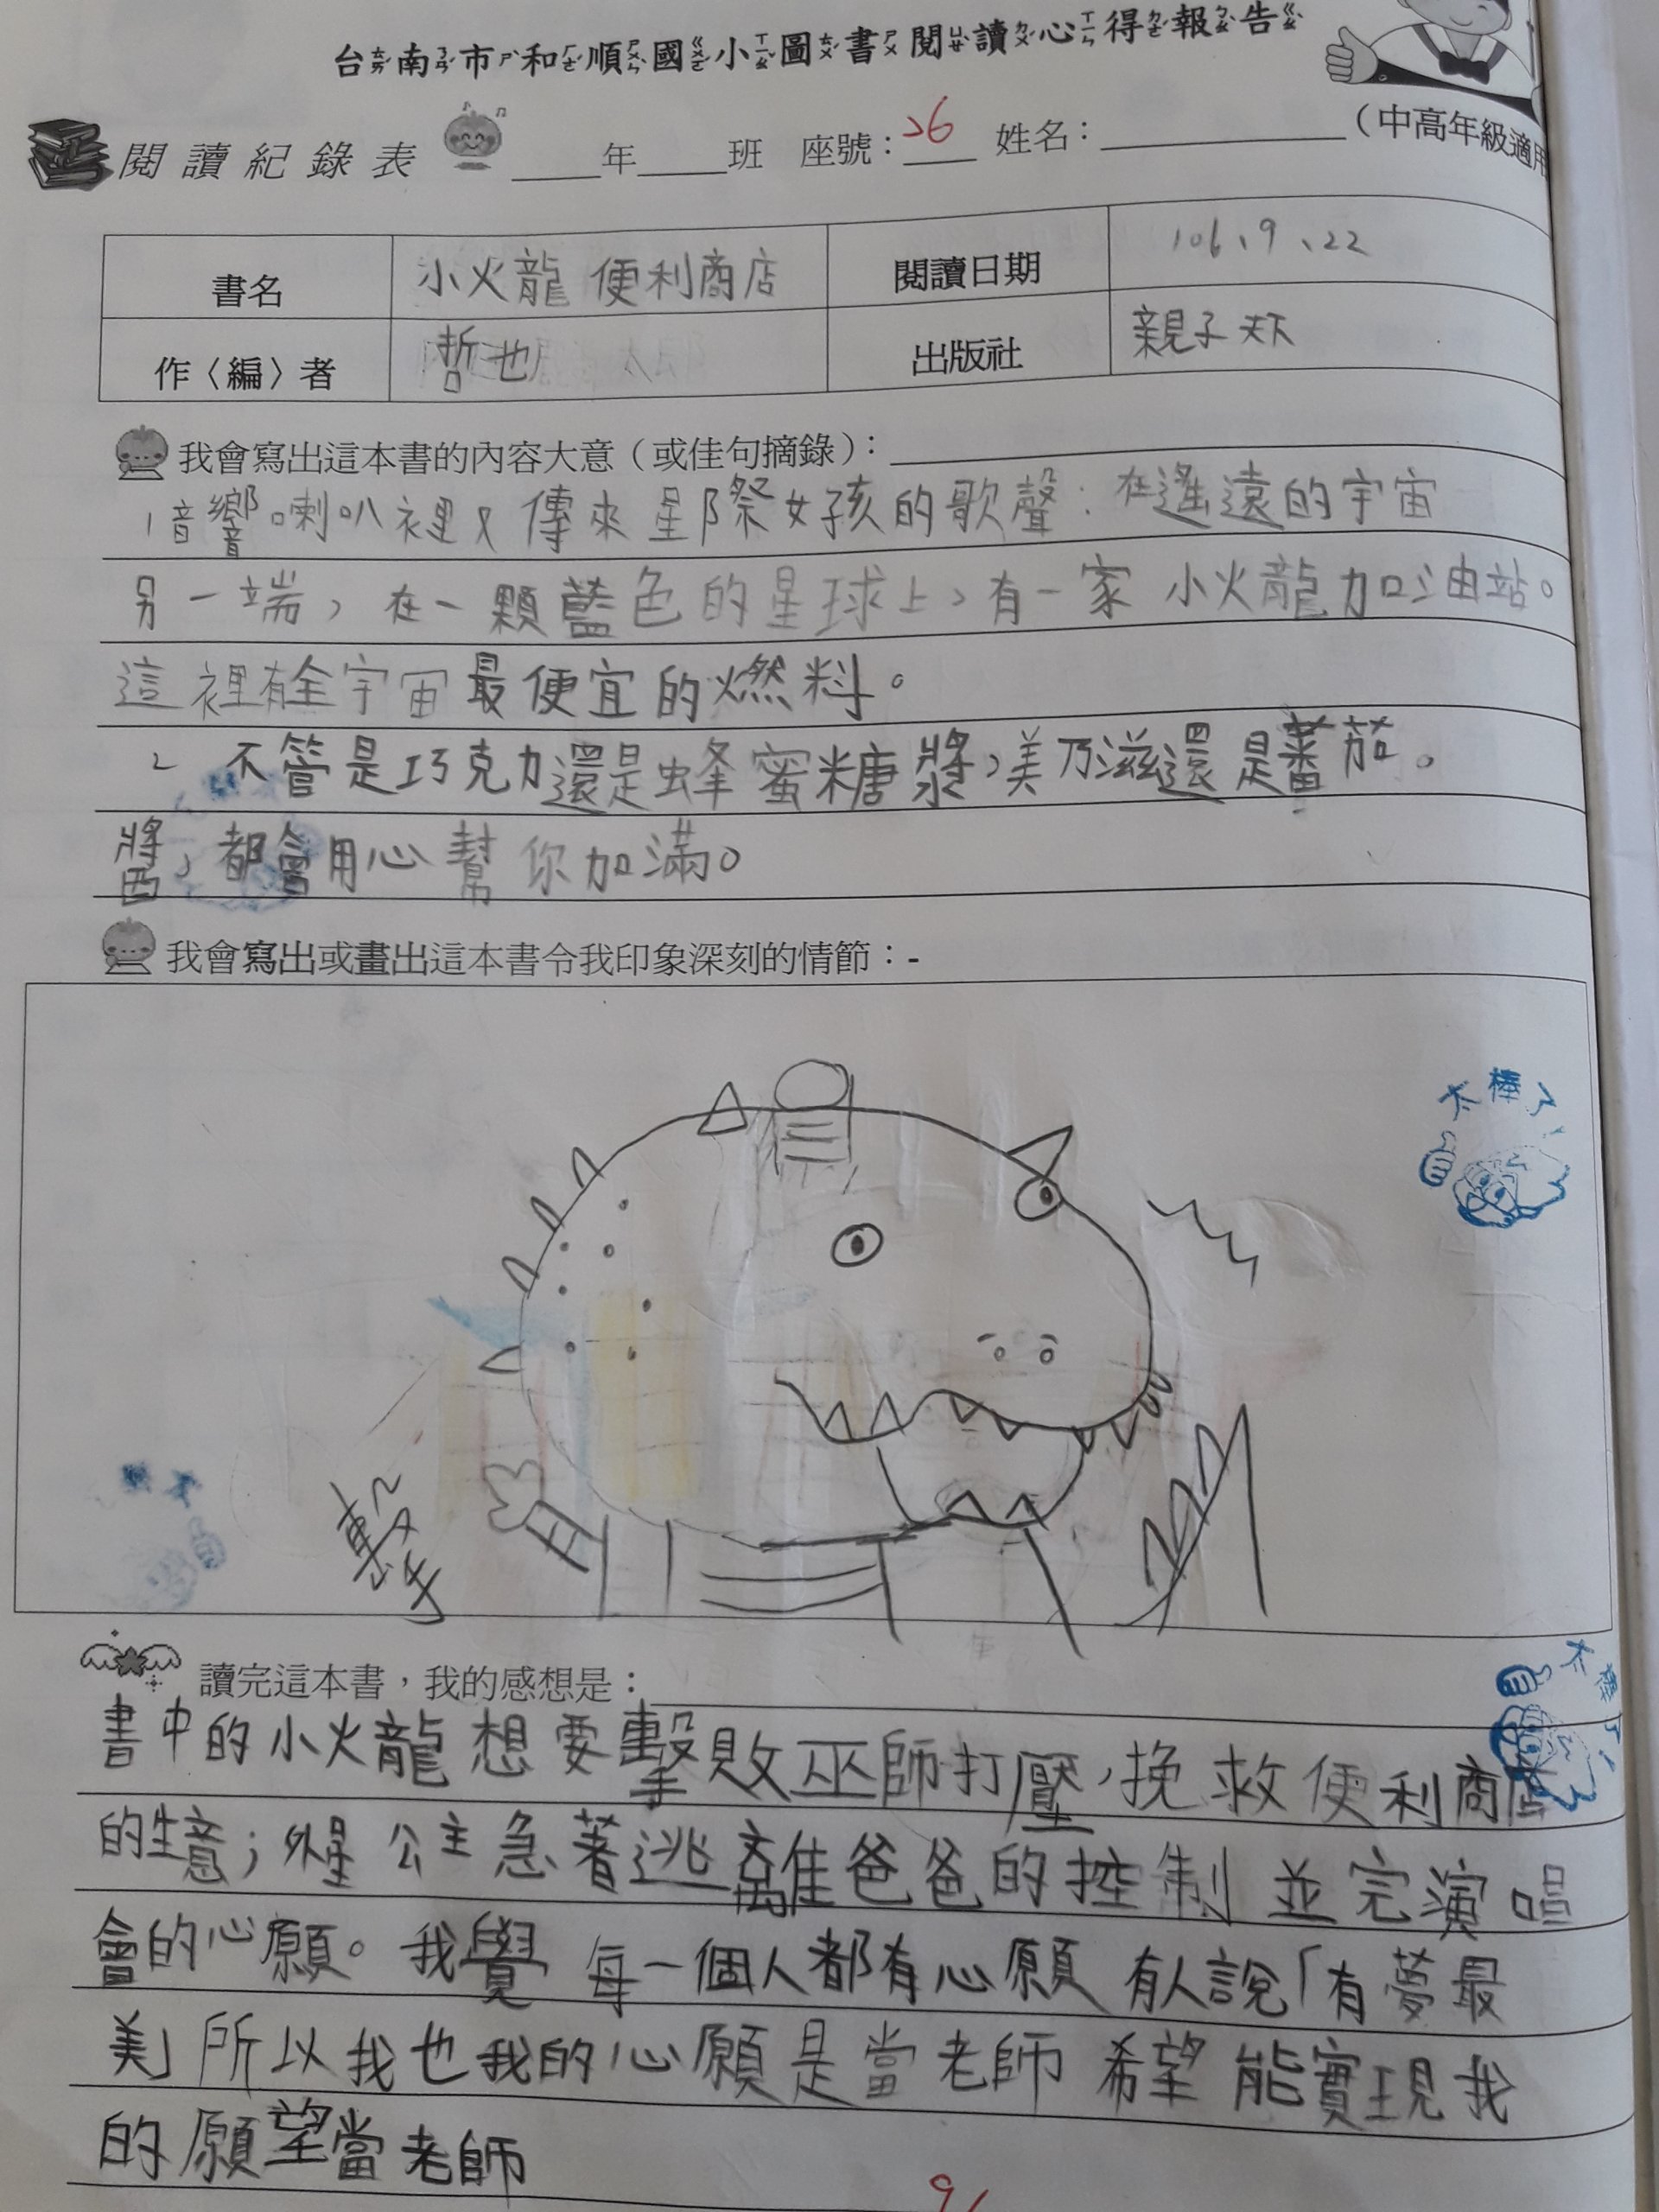 台南市和順國小圖書閱讀心得報告
閱讀紀錄表 ____年____班 座號：26 姓名：________（中高年級適用
書名 小火龍便利商店 閱讀日期 106、9、22
作〈編〉者 哲也 出版社 親子天下
我會寫出這本書的內容大意（或佳句摘錄）：
1音響喇叭裡又傳來星際女孩的歌聲：在遙遠的宇宙
另一端，在一顆藍色的星球上，有一家小火龍加油站。
這裡有全宇宙最便宜的燃料。
2 不管是巧克力還是蜂蜜糖漿，美乃滋還是蕃茄。
醬，都會用心幫你加滿。
我會寫出或畫出這本書令我印象深刻的情節：-
太棒了
擊
讀完這本書，我的感想是：
太棒了
書中的小火龍想要擊敗巫師打壓，挽救便利商店
的生意；外星公主急著逃離爸爸的控制並完演唱
會的心願。我覺每一個人都有心願有人說「有夢最
美」所以我也我的心願是當老師希望能實現我
的願望當老師